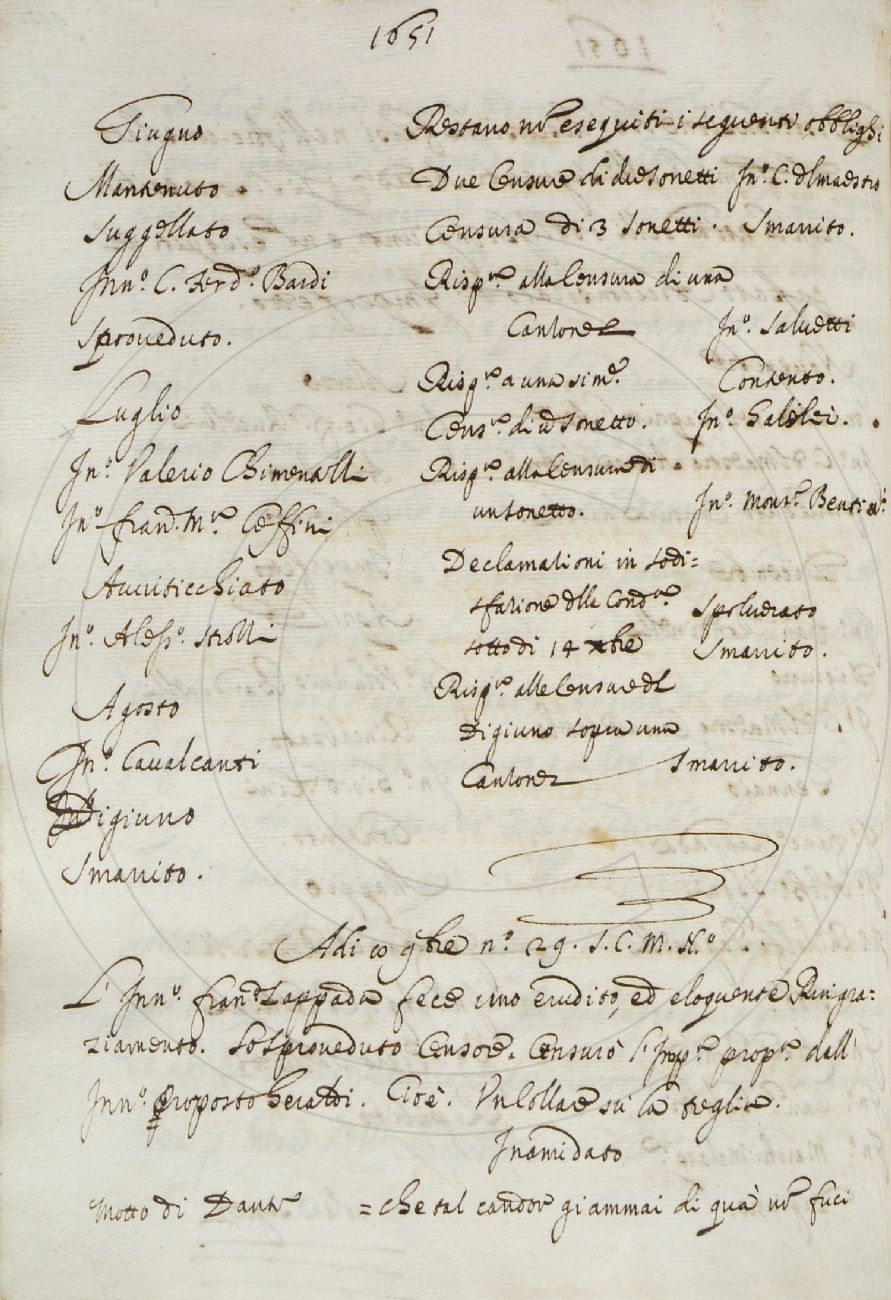 1651
Giugno
Mantenuto
Suggellato
Inn.º C. Ferd.º Bardi
Sproveduto.
Luglio
In.º Valerio Chimenalli
In.º Fran. M.ª Ceffini
Avviticchiato
In.º Aless.º
Agosto
In.º Cavalcanti
Digiuno
Smarrito.
Restano nõ eseguiti i seguenti obblighi
Due Censure di due Sonetti In.º C. del maestro
Censura di 3 Sonetti. Smarrito.
Risp.ta alla Censura di una
Canzone In.º Salvetti
Risp.ta a una sim.e Contento.
Cens.ra di un Sonetto. In.º Galilei.
Risp.ta alla Censura di
un Sonetto. In.º Mons.r
Declamationi in sodi=
sfatione della Cond.na Spolverato
sotto di 14 xbre Smarrito.
Risp.ta alle Censure del
Digiuno sopra una
Canzone Smarrito.
Adi 10 9bre n.º 29. S. C. M. N.º
L'Inn.º Fran.º Zappada fece uno erudito, ed eloquente Ringra=
ziamento. Lo Sproveduto Censore. Censurò l'Imp.sa prop.ta dall'
Inn.º Proposto Geraldi. Cioè. Un Collare sù la teglia.
Inamidato
Motto di Dante = che tal candor giammai di quà nõ fuci